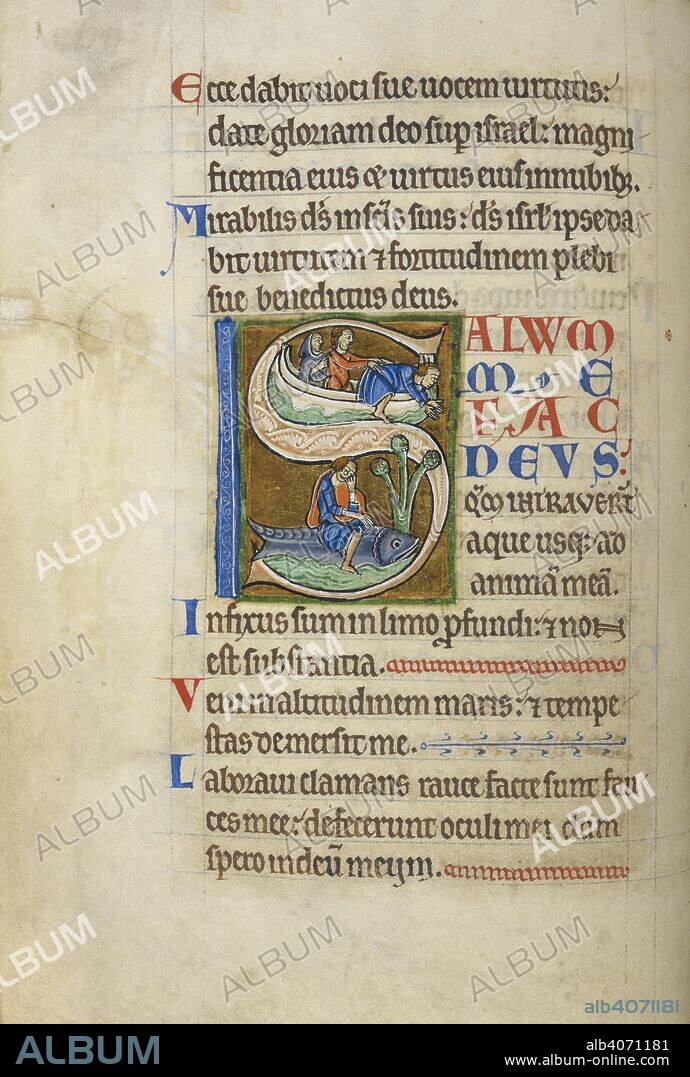 Ecce dabit uoci sue uocem uirtutis:
date gloriam deo sup israel: magni
ficentia eius & uirtus eius in nubibꝫ.
Mirabilis ds̄ in sc̄is suis: ds̄ isrl̄ ipse da
bit uirtutem ⁊ fortitudinem plebi
sue benedictus deus.
SALWM
M E
FAC
DEVS:
qm̄ intrauert̄
aque usqꝫ ad
animā meā.
Infixus sum in limo ꝓfundi: ⁊ non
est substantia.
Veni in altitudinem maris: ⁊ tempe
stas demersit me.
Laboraui clamans rauce facte sunt fau
ces mee: defecerunt oculi mei dum
spero in deū meum.
ALBUM
alb4071181
ALBUM
alb4071181
www.album-online.com